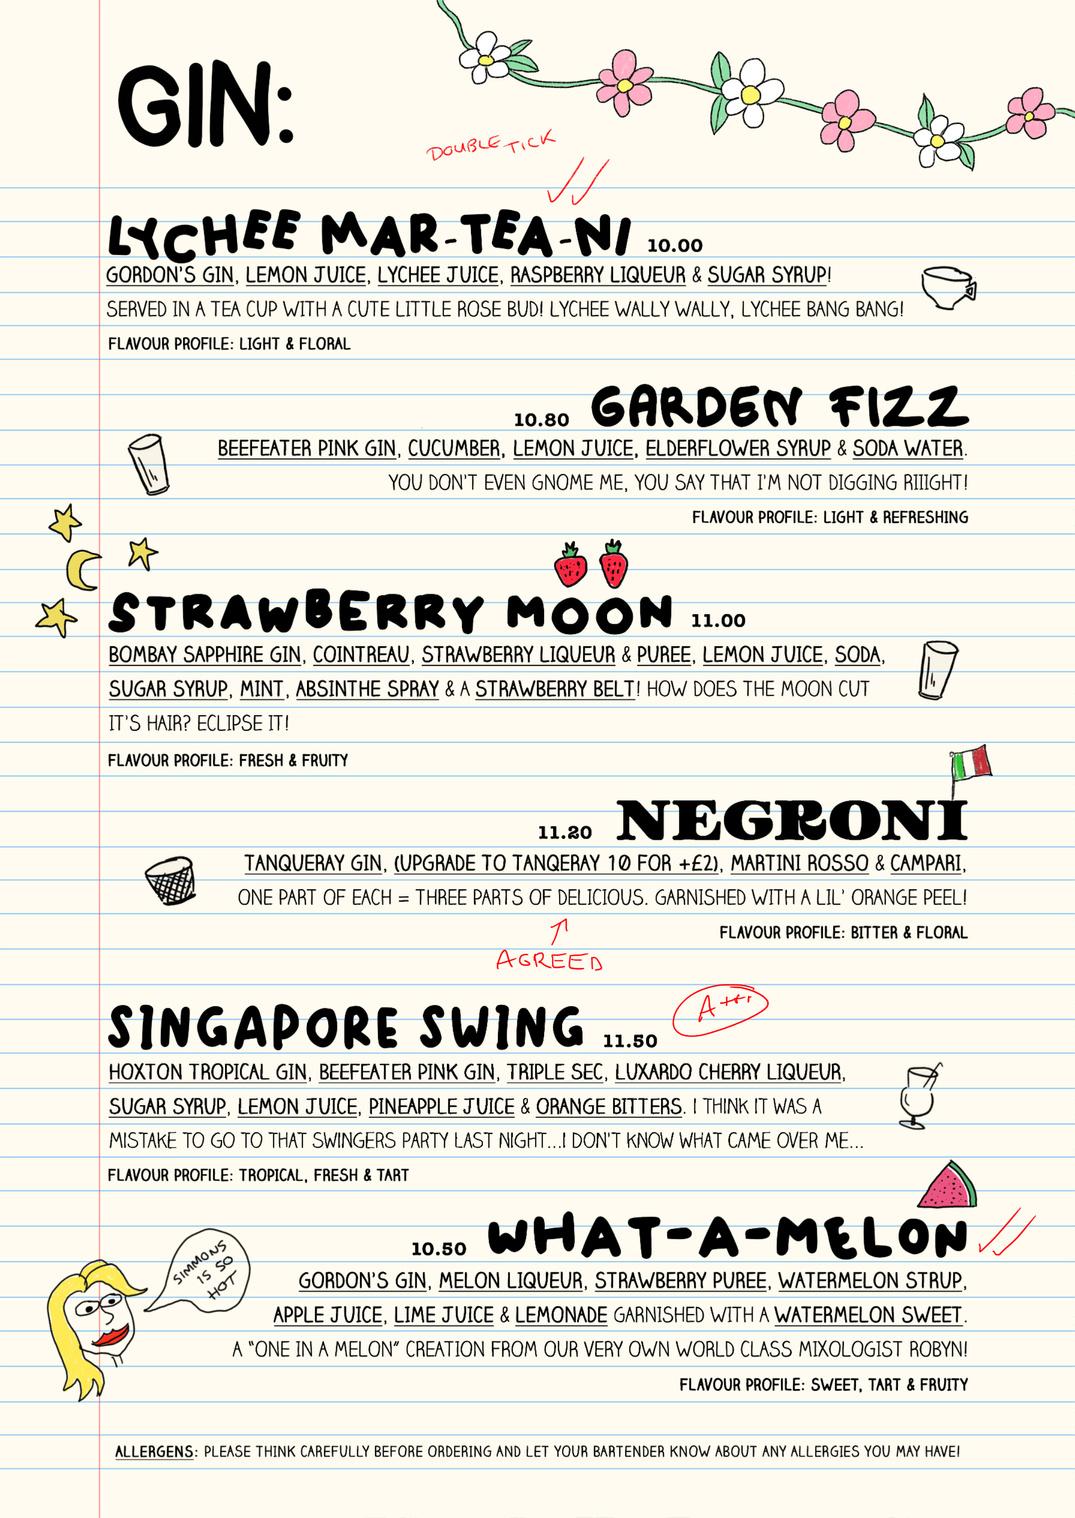 GIN:
DOUBLE TICK
LYCHEE MAR-TEA-NI 10.00
GORDON'S GIN, LEMON JUICE, LYCHEE JUICE, RASPBERRY LIQUEUR & SUGAR SYRUP!
SERVED IN A TEA CUP WITH A CUTE LITTLE ROSE BUD! LYCHEE WALLY WALLY, LYCHEE BANG BANG!
FLAVOUR PROFILE: LIGHT & FLORAL
10.80 GARDEN FIZZ
BEEFEATER PINK GIN, CUCUMBER, LEMON JUICE, ELDERFLOWER SYRUP & SODA WATER.
YOU DON'T EVEN GNOME ME, YOU SAY THAT I'M NOT DIGGING RIIIGHT!
FLAVOUR PROFILE: LIGHT & REFRESHING
STRAWBERRY MOON 11.00
BOMBAY SAPPHIRE GIN, COINTREAU, STRAWBERRY LIQUEUR & PUREE, LEMON JUICE, SODA,
SUGAR SYRUP, MINT, ABSINTHE SPRAY & A STRAWBERRY BELT! HOW DOES THE MOON CUT
IT'S HAIR? ECLIPSE IT!
FLAVOUR PROFILE: FRESH & FRUITY
11.20 NEGRONI
TANQUERAY GIN, (UPGRADE TO TANQERAY 10 FOR +£2), MARTINI ROSSO & CAMPARI,
ONE PART OF EACH = THREE PARTS OF DELICIOUS. GARNISHED WITH A LIL' ORANGE PEEL!
FLAVOUR PROFILE: BITTER & FLORAL
AGREED
SINGAPORE SWING 11.50
A+++
HOXTON TROPICAL GIN, BEEFEATER PINK GIN, TRIPLE SEC, LUXARDO CHERRY LIQUEUR,
SUGAR SYRUP, LEMON JUICE, PINEAPPLE JUICE & ORANGE BITTERS. I THINK IT WAS A
MISTAKE TO GO TO THAT SWINGERS PARTY LAST NIGHT...I DON'T KNOW WHAT CAME OVER ME...
FLAVOUR PROFILE: TROPICAL, FRESH & TART
10.50 WHAT-A-MELON
SIMMONS
IS SO
HOT
GORDON'S GIN, MELON LIQUEUR, STRAWBERRY PUREE, WATERMELON STRUP,
APPLE JUICE, LIME JUICE & LEMONADE GARNISHED WITH A WATERMELON SWEET.
A "ONE IN A MELON" CREATION FROM OUR VERY OWN WORLD CLASS MIXOLOGIST ROBYN!
FLAVOUR PROFILE: SWEET, TART & FRUITY
ALLERGENS: PLEASE THINK CAREFULLY BEFORE ORDERING AND LET YOUR BARTENDER KNOW ABOUT ANY ALLERGIES YOU MAY HAVE!